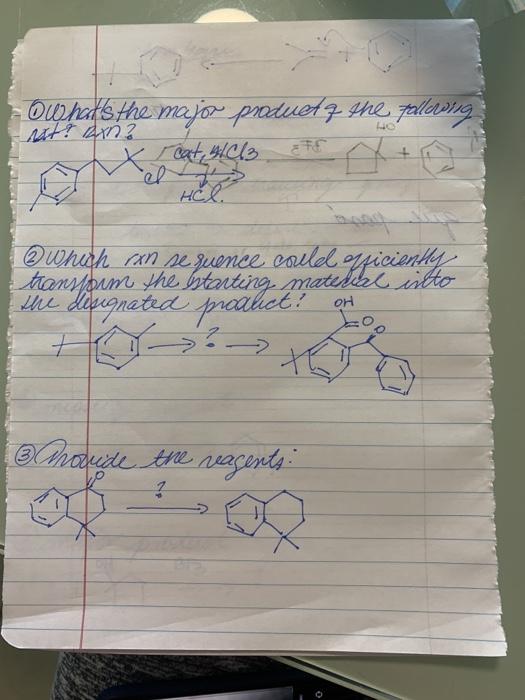 ① What's the major product of the following
rxn?
cat. AlCl3
Cl
HCl.
② Which rxn sequence could efficiently
transform the starting material into
the designated product?
OH
O
O
?
③ Provide the reagents:
O
?